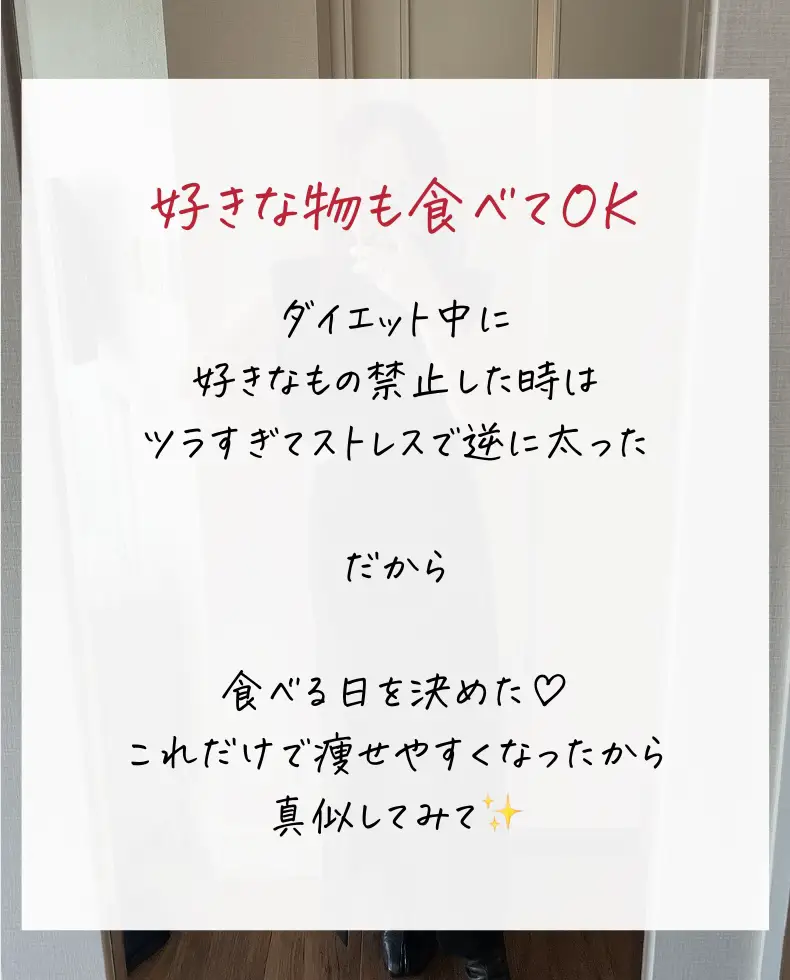 好きな物も食べてOK
ダイエット中に
好きなもの禁止した時は
ツラすぎてストレスで逆に太った
だから
食べる日を決めた♡
これだけで痩せやすくなったから
真似してみて✨